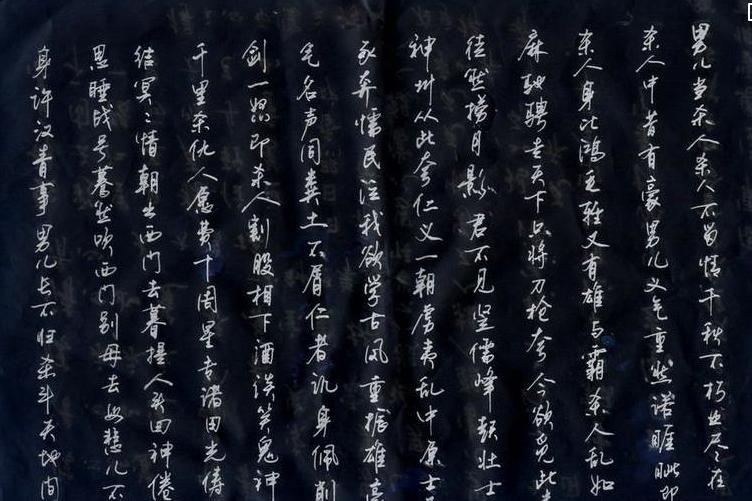 男儿当杀人杀人不留情千秋不朽业尽在
杀人中昔有豪男儿义气重然诺睚眦即
杀人身比鸿毛轻又有雄与霸杀人乱如
麻驰骋走天下只将刀枪夸今欲觅此
徒然捞月影君不见竖儒蜂起壮士
神州从此夸仁义一朝虏夷乱中原士
豕奔懦民泣我欲学古风重振雄豪
气名声同粪土不屑仁者讥身佩削
剑一怒即杀人割股相下酒谈笑鬼神
千里杀仇人愿费十周星专诸田光俦
结冥冥情朝出西门去暮提人头回神倦
思睡战号蓦然吹西门别母去母悲儿不
身许汉青事男儿长不归杀斗天地间